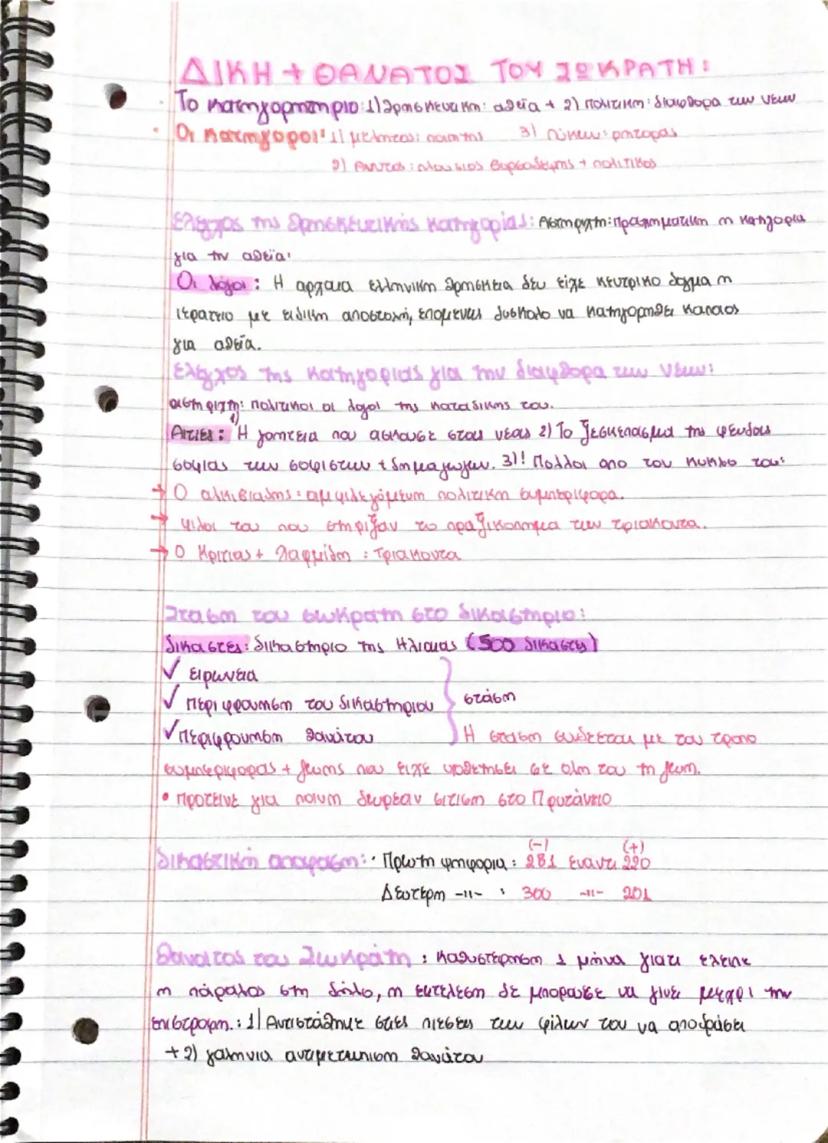 ΔΙΚΗ + ΘΑΝΑΤΟΣ ΤΟΥ ΣΩΚΡΑΤΗ:
· Το κατηγορητηριο: 1) θρησκευτικη: αθεϊα + 2) πολιτικη: διαφθορα των νεων
· Οι κατηγοροι: 1) μελητος: ποιητης 3) Λύκων: ρητορας
2) Ανυτος: πλουσιος βυρσοδεψης + πολιτικος
Ελεγχος της θρησκευτικής κατηγορίας: Αστηριχτη: πραγματικη η κατηγορια
για την αθεϊα·
Οι λόγοι: Η αρχαια ελληνικη θρησκεια δεν είχε κεντρικο δογμα η
ιερατειο με ειδικη αποστολή, επομενως δυσκολο να κατηγορηθει καποιος
για αθεΐα.
Ελεγχος της κατηγοριας για την διαφθορα των νεων:
αστηριχτη: πολιτικοι οι λογοι της καταδικης του.
Αιτιες: 1) Η γοητεια που ασκουσε στους νεους 2) Το ξεσκεπασμα της ψευδους
σοφιας των σοφιστων + δημαγωγων. 3)! Πολλοι απο τον κυκλο του:
→ Ο αλκιβιαδης: αμφιλεγόμενη πολιτικη συμπεριφορα.
→ φιλοι του που στηριξαν το πραξικοπημα των τριακοντα.
→ Ο Κριτιας + Χαρμιδης: Τριακοντα
Σταση του σωκρατη στο δικαστηριο:
δικαστες: δικαστηριο της Ηλιαιας (500 δικαστες)
✓ ειρωνεια
✓ περιφρονηση του δικαστηριου } στάση
✓ περιφρονηση θανάτου Η σταση συνδεεται με τον τροπο
συμπεριφορας + ζωης που ειχε υιοθετησει σε ολη του τη ζωη.
• προτεινε για ποινη δωρεάν σιτιση στο Πρυτάνειο
(-) (+)
Δικαστική αποφαση: · Πρωτη ψηφορια: 281 έναντι 220
Δεύτερη -||- : 300 -||- 201
θανατος του Σωκράτη: καθυστερηση 1 μήνα γιατι ελειπε
η πάραλος στη δήλο, η εκτελεση δε μπορουσε να γίνει μεχρι την
επιστροφη.: 1) Αντιστάθηκε στις πιεσεις των φίλων του να αποδράσει
+ 2) γαληνια αντιμετωπιση θανάτου